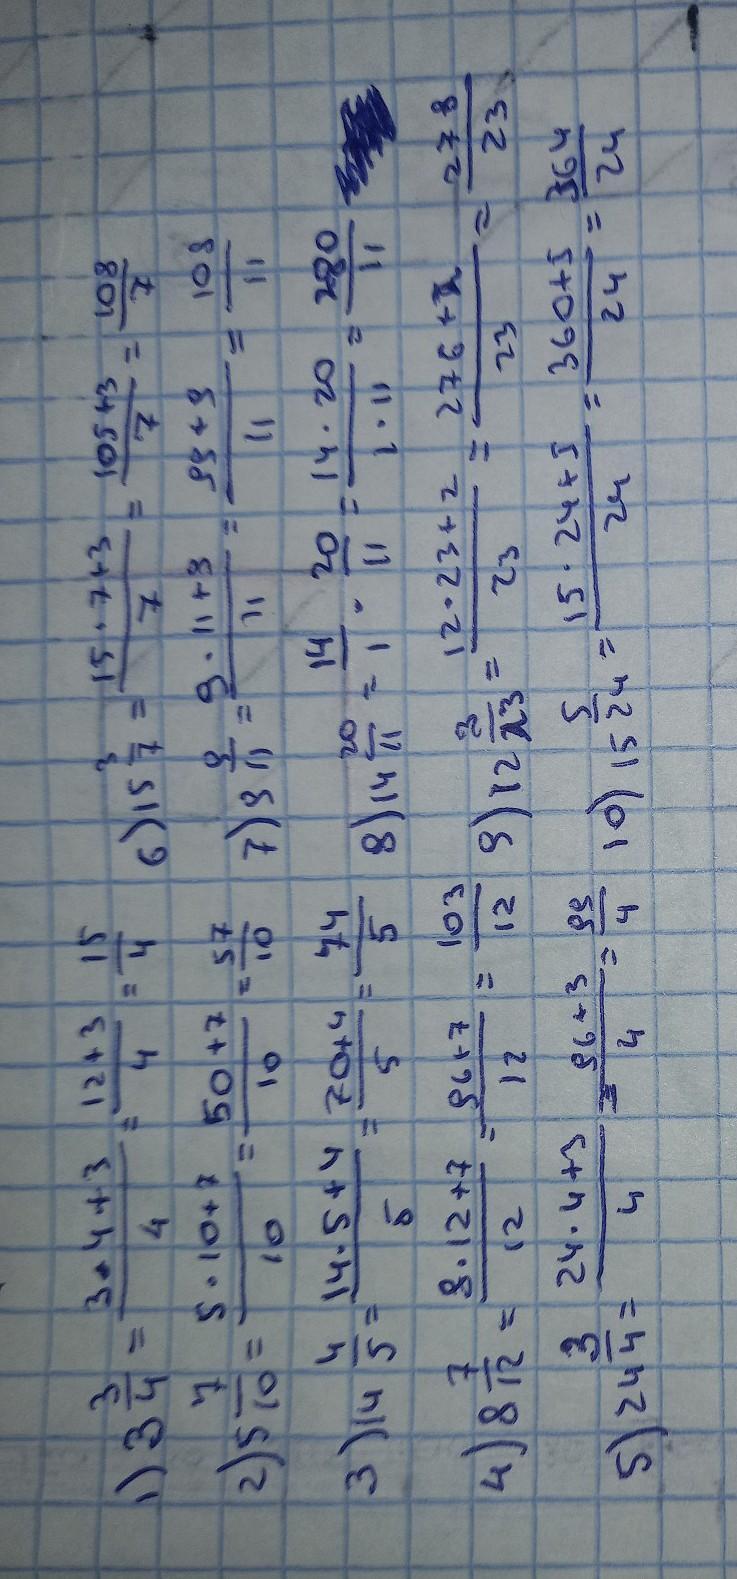 1) 3 3/4 = 3·4+3/4 = 12+3/4 = 15/4
2) 5 7/10 = 5·10+7/10 = 50+7/10 = 57/10
3) 14 4/5 = 14·5+4/5 = 70+4/5 = 74/5
4) 8 7/12 = 8·12+7/12 = 96+7/12 = 103/12
5) 24 3/4 = 24·4+3/4 = 96+3/4 = 99/4
6) 15 3/7 = 15·7+3/7 = 105+3/7 = 108/7
7) 9 9/11 = 9·11+9/11 = 99+9/11 = 108/11
8) 14 20/11 = 14/1 · 20/11 = 14·20/1·11 = 280/11
9) 12 2/23 = 12·23+2/23 = 276+2/23 = 278/23
10) 15 5/24 = 15·24+5/24 = 360+5/24 = 364/24